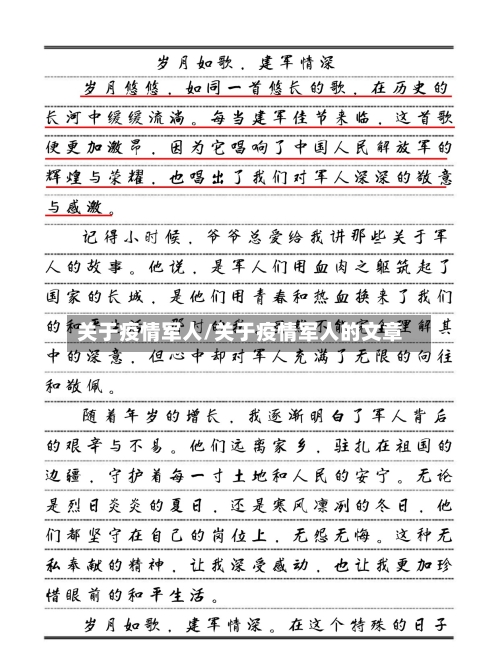 岁月如歌，建军情深
岁月悠悠，如同一首悠长的歌，在历史的
长河中缓缓流淌。每当建军佳节来临，这首歌
便更加激昂，因为它唱响了中国人民解放军的
辉煌与荣耀，也唱出了我们对军人深深的敬意
与感激。
记得小时候，爷爷总爱给我讲那些关于军
人的故事。他说，是军人们用血肉之躯筑起了
国家的长城，是他们用青春和热血换来了我们
的和
理解其
关于疫情军人/关于疫情军人的文章
中的深意，但心中却对军人充满了无限的向往
和敬佩。
随着年岁的增长，我逐渐明白了军人背后
的艰辛与不易。他们远离家乡，驻扎在祖国的
边疆，守护着每一寸土地和人民的安宁。无论
是烈日炎炎的夏日，还是寒风凛冽的冬日，他
们都坚守在自己的岗位上，无怨无悔。这种无
私奉献的精神，让我深受感动，也让我更加珍
惜眼前的和平生活。
岁月如歌，建军情深。在这个特殊的日子